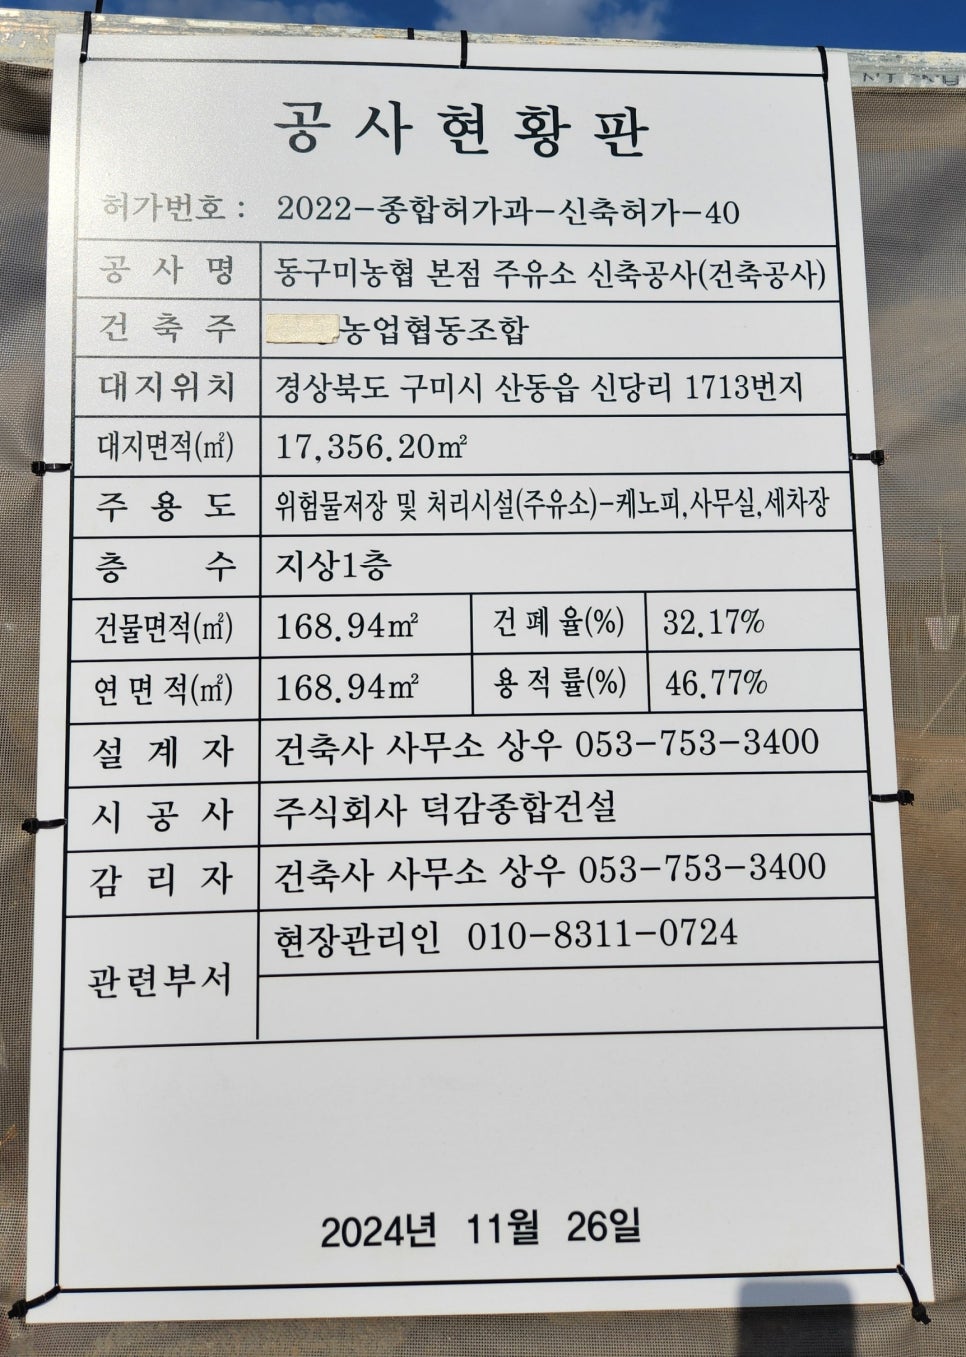 공사현황판
허가번호 : 2022-종합허가과-신축허가-40
공사명 동구미농협 본점 주유소 신축공사(건축공사)
건축주 농업협동조합
대지위치 경상북도 구미시 산동읍 신당리 1713번지
대지면적(㎡) 17,356.20㎡
주용도 위험물저장 및 처리시설(주유소)-케노피,사무실,세차장
층수 지상1층
건물면적(㎡) 168.94㎡ 건폐율(%) 32.17%
연면적(㎡) 168.94㎡ 용적률(%) 46.77%
설계자 건축사 사무소 상우 053-753-3400
시공사 주식회사 덕감종합건설
감리자 건축사 사무소 상우 053-753-3400
관련부서 현장관리인 010-8311-0724
2024년 11월 26일